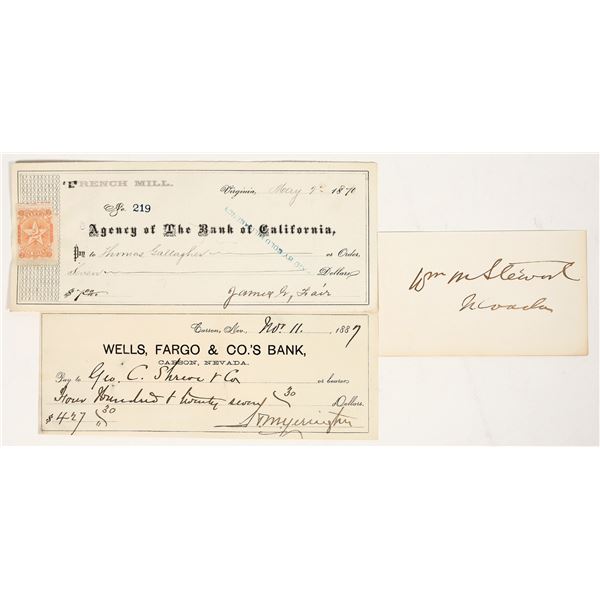 FRENCH MILL.
Virginia, May 9th 1870
No. 219
Agency of The Bank of California,
Pay to Thomas Gallagher or Order,
Seven Dollars,
$7.00 James G. Fair
Carson, Nev. Nov 11 1887
WELLS, FARGO & CO.'S BANK,
CARSON, NEVADA.
Pay to Geo. C. Shreve & Co or bearer,
Four Hundred & twenty seven 30 Dollars.
$427 30 H M Yerington
Wm M Stewart
Nevada